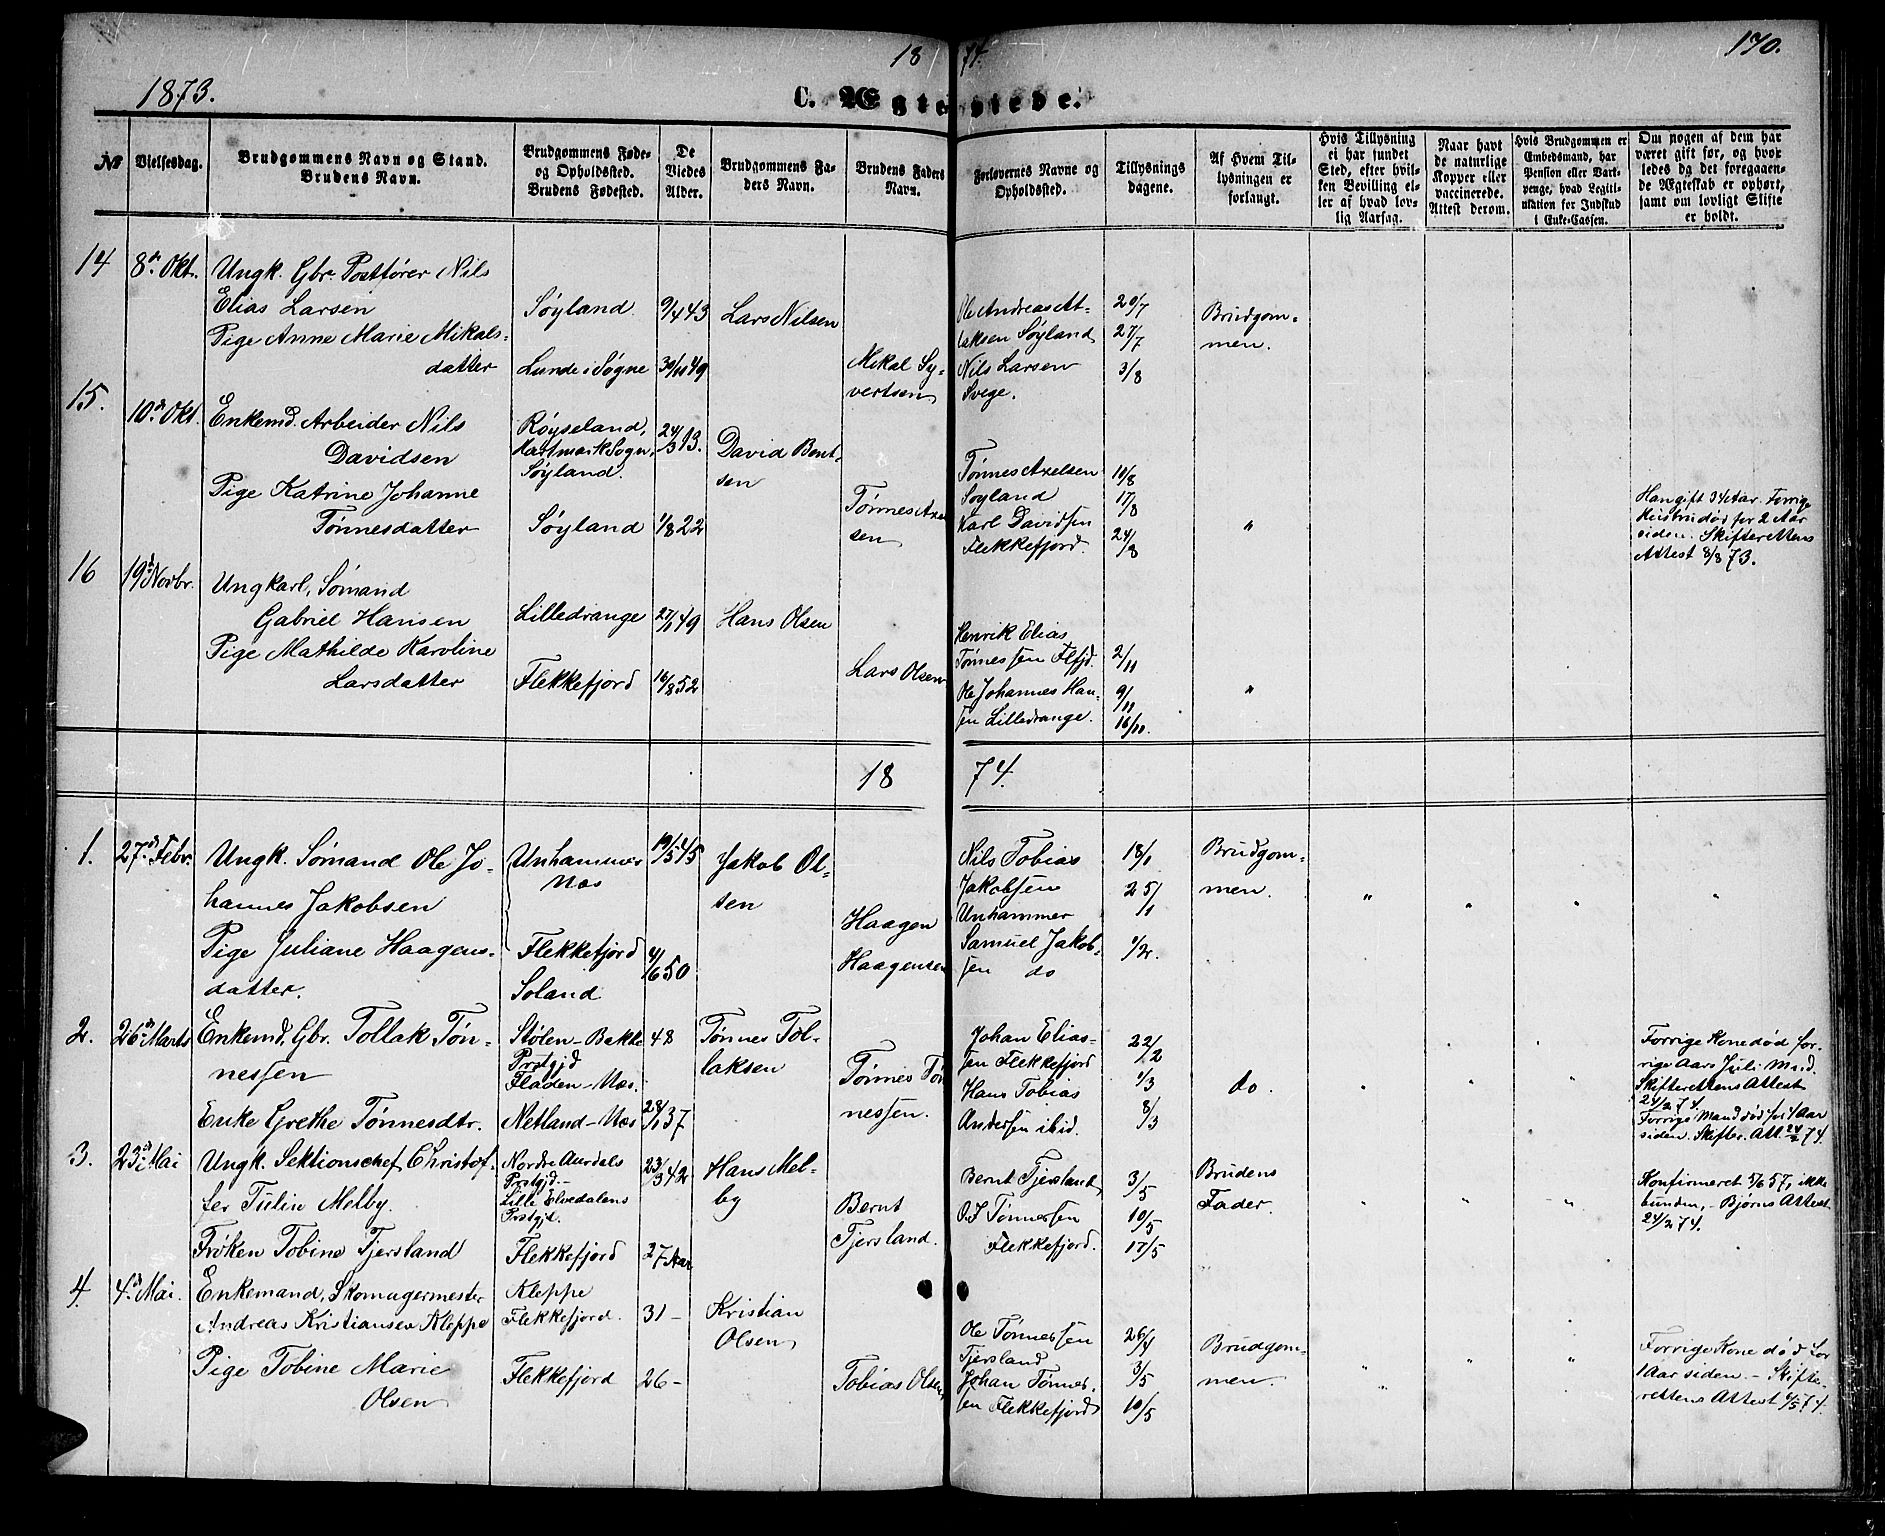 1873.
18 74.
170.
C. Ægteviede.
№
Vielsesdag.
Brudgommens Navn og Stand.
Brudens Navn.
Brudgommens Føde-
og Opholdssted.
Brudens Fødested.
De
Viedes
Alder.
Brudgommens Fa-
ders Navn.
Brudens Faders
Navn.
Forlovernes Navne og
Opholdssted.
Tillysnings
dagene.
Af Hvem Til-
lysningen er
forlangt.
Hvis Tillysning
ei har fundet
Sted, efter hvil-
ken Bevilling el-
ler af hvad lov-
lig Aarsag.
Naar havt
de naturlige
Kopper eller
vaccinerede.
Attest derom.
Hvis Brudgommen er
Embedsmand, har
Pension eller Vart-
penge, hvad Legiti-
mation for Indskud
i Enke-Cassen.
Om nogen af dem har
været gift før, og hvor-
ledes da det foregaaen-
de Ægteskab er ophørt,
samt om lovligt Skifte
er holdt.
14
8de Okt.
Ungk. Gbr. Postfører Nils
Elias Larsen
Pige Anne Marie Mikals-
datter
Søyland
Lunde i Søgne
9/4 43
30/10 49
Lars Nilsen
Mikal Sy-
vertsen
Ole Andreas At-
laksen Søyland
Nils Larsen
Svege.
20/7
27/7
3/8
Brudgom-
men.
15.
10de Okt.
Enkemd. Arbeider Nils
Davidsen
Pige Katrine Johanne
Tønnesdatter
Røyseland,
Hartmark Sogn,
Søyland.
Søyland
24/3 13.
1/8 22
David Bent-
sen
Tønnes Axel
sen
Tønnes Axelsen
Søyland
Karl Davidsen
Flekkefjord.
10/8
17/8
24/8
"
Han gift 34 Aar. Forrige
Hustru død for 2 Aar
siden. Skifterettens
Attest 8/8 73.
16
19de Novbr.
Ungkarl, Sømand
Gabriel Hansen
Pige Mathilde Karoline
Larsdatter
Lilledrange
Flekkefjord
27/11 49
16/8 52
Hans Olsen
Lars Olsen
Henrik Elias
Tønnessen Flfjd.
Ole Johannes Han-
sen Lilledrange.
2/11
9/11
16/11.
"
18 74.
1.
27de Febr.
Ungk. Sømand Ole Jo-
hannes Jakobsen
Pige Juliane Haagens-
datter.
Unhammer
Næs
Flekkefjord
Soland
19/5 45
4/6 50
Jakob Ol-
sen
Haagen
Haagensen
Nils Tobias
Jakobsen
Unhammer
Samuel Jakob-
sen do
18/1
25/1
1/2.
Brudgom-
men.
" " " "
2.
26de Marts
Enkemd. Gbr. Tollak Tøn-
nessen
Enke Grethe Tønnesdtr.
Stølen - Bakke
Prstgjd
Fladen - Næs.
Netland - Næs
48
28/1 37
Tønnes Tol-
laksen
Tønnes Tøn
nessen.
Johan Elias-
sen Flekkefjord
Hans Tobias
Andersen ibid.
22/2
1/3
8/3
do.
" " "
Forrige Kone død for-
rige Aars Juli Mnd.
Skifterettens Attest
24/2 74.
Forrige Mand død for 1 Aar
siden. Skifter. Att. 24/2 74.
3.
23de Mai
Ungk. Sektionschef Christof-
fer Tulin Melby.
Frøken Tobine Tjersland
Nordre Aurdals
Prstgjd. -
Lille Elvedalens
Prstgjd.
Flekkefjord
23/3 42
27 Aar
Hans Mel-
by
Bernt
Tjersland.
Bernt Tjersland
O. J Tønnessen
Flekkefjord.
3/5
10/5
17/5
Brudens
Fader.
" " "
Konfirmeret 3/6 57, ikke
bunden, - Bjørns Attest
24/2 74.
4.
4de Mai.
Enkemand, Skomagermester
Andreas Kristiansen Kleppe
Pige Tobine Marie
Olsen
Kleppe
Flekkefjord.
Flekkefjord
31 -
26 -
Kristian
Olsen
Tobias Olsen
Ole Tønnessen
Tjersland
Johan Tønnes-
sen Flekkefjord
26/4
3/5
10/5
Brudgom-
men.
" " "
Forrige Kone død for
1 Aar siden. - Skifte-
rettens Attest 4/5 74.